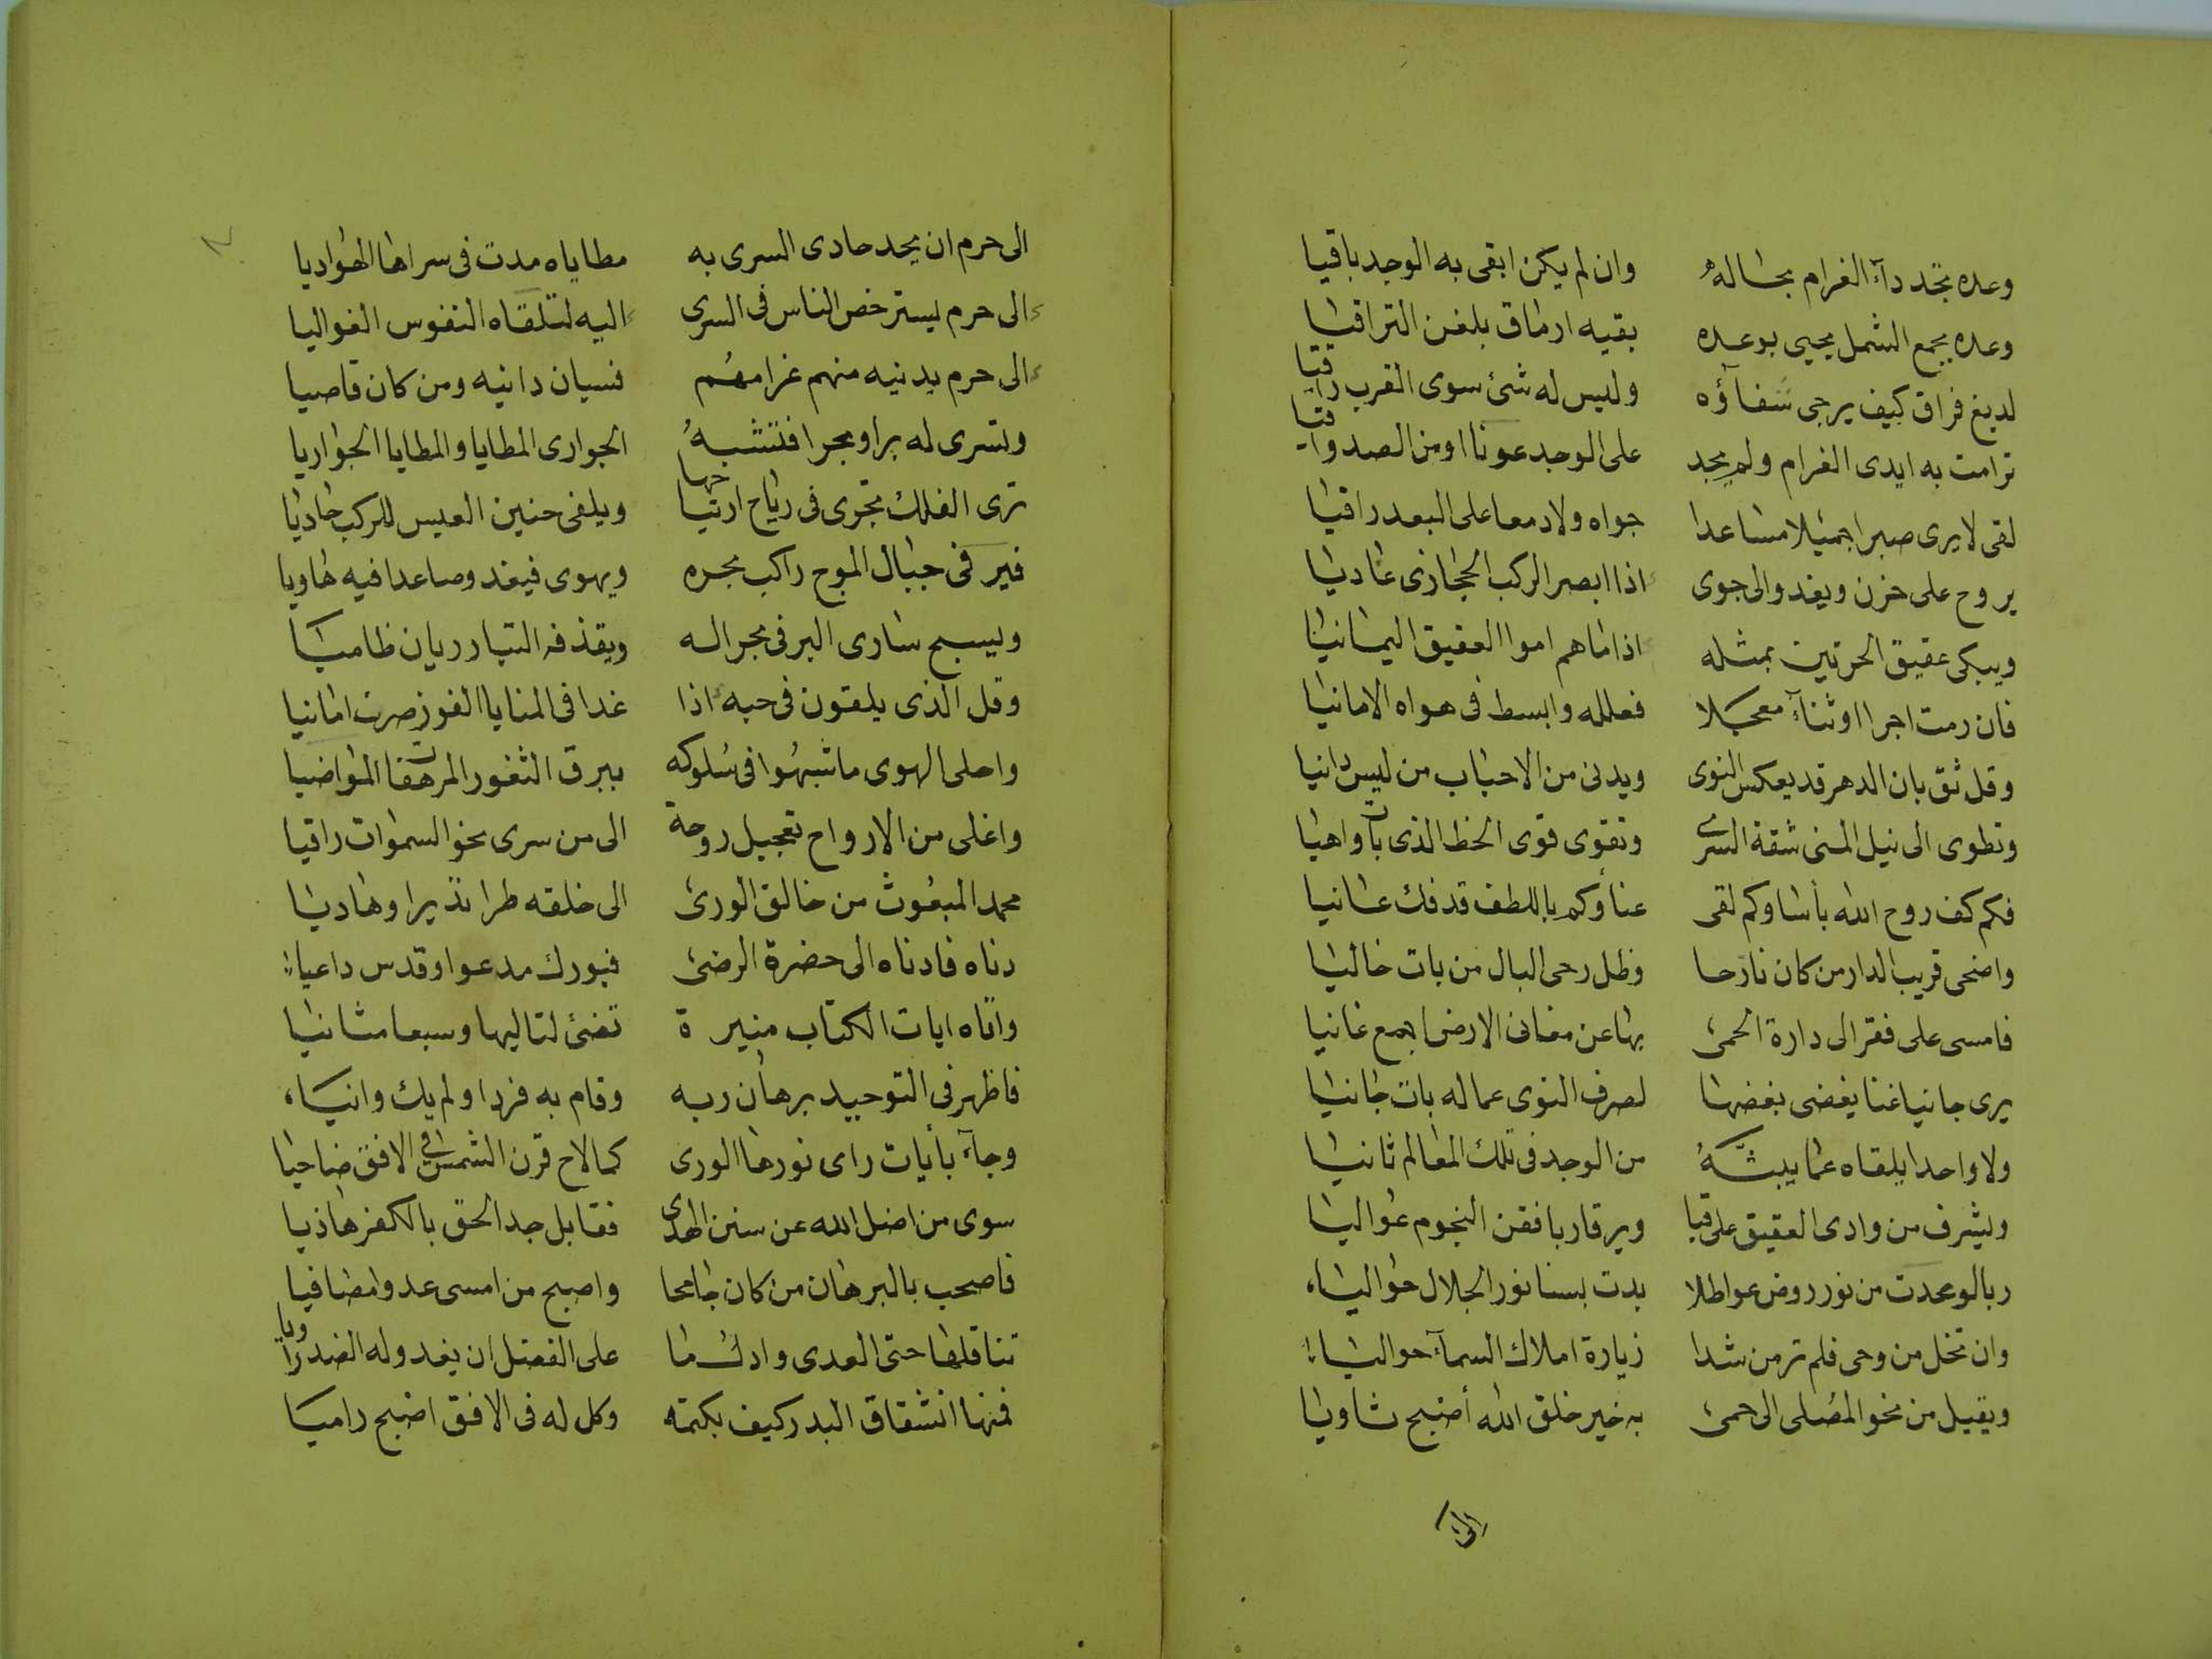 وعده تجد دآء الغرام بحاله وان لم يكن ابقى به الوجد باقيا
وعده بجمع الشمل يحيى بوعده بقيه ارماق بلغن التراقيا
لديغ فراق كيف يرجى شفآؤه وليس له شئ سوى القرب راقيا
ترامت به ايدى الغرام ولم يجد على الوجد عونا او من الصد واقيا
لقى لا يرى صبرا جميلا مساعدا جواه ولا دمعا على البعد راقيا
يروح على حزن ويغدو الى جوى اذا ابصر الركب الحجازى غاديا
ويبكى عقيق الحرتين بمثله اذا ما هم اموا العقيق اليمانيا
فان رمت اجرا او ثنآء معجلا فعلله وابسط فى هواه الامانيا
وقل ثق بان الدهر قد يعكس النوى ويدنى من الاحباب من ليس دانيا
وتطوى الى نيل المنى شقة السرى وتقوى قوى الحظ الذى بات واهيا
فكم كف روح الله بأسا وكم لقى عنا وكم باللطف قد فك عانيا
واضحى قريب الدار من كان نازحا وظل رخى البال من بات خاليا
فامسى على فقر الى دارة الحمى بها عن مغانى الارض اجمع غانيا
يرى جانيا غنا يغضى بغضها لصرف النوى عما له بات جانيا
ولا واحدا يلقاه عما يبثه من الوجد فى تلك المعالم ثانيا
ويشرف من وادى العقيق على قبا ويرقا ربا فقن النجوم عواليا
ربا لو عدت من نور روض عواطلا بدت بسنا نور الجلال حواليا
وان تخل من وحى فلم تر من شدا زيارة املاك السمآء حواليا
ويقبل من نحو المصلى الى حمى به خير خلق الله أصبح ثاويا
الى
الى حرم ان يحد حادى السرى به مطاياه مدت فى سراها الهواديا
الى حرم يسترخص الناس فى السرى اليه لتلقاه النفوس الغواليا
الى حرم يدنيه منهم غرامهم فسيان دانيه ومن كان قاصيا
وتسرى له برا وبحرا فتشبه الجوارى المطايا والمطايا الجواريا
ترى الفلك تجرى فى رياح ارتياحها ويلفى حنين العيس للركب حاديا
فيرقى جبال الموج راكب بحره ويهوى فيغدو صاعدا فيه هاويا
ويسبح سارى البر فى بحر اله ويقذفه التيار ريان ظاميا
وقل الذى يلقون فى حبه اذا غدا فى المنايا الفوز صرت امانيا
واحلى الهوى ما شبهوا فى سلوكه ببرق الثغور المرهفات المواضيا
واغلى من الارواح تعجيل روحة الى من سرى نحو السموات راقيا
محمد المبعوث من خالق الورى الى خلقه طرا نذيرا وهاديا
دناه فادناه الى حضرة الرضى فبورك مدعوا وقدس داعيا
واتاه ايات الكتاب منيرة تضئ لتاليها وسبعا مثانيا
فاظهر فى التوحيد برهان ربه وقام به فردا ولم يك وانيا
وجآء بأيات راى نورها الورى كما لاح قرن الشمس فى الافق ضاحيا
سوى من اضل الله عن سنن الهدى فقابل جد الحق بالكفر هاذيا
فاصحب بالبرهان من كان جامحا واصبح من امسى عدوا مصافيا
تناقلها حتى العدى وادك ما على الفضل ان يغدو له الضد راويا
فمنها انشقاق البدر كيف بكتمه وكل له فى الافق اصبح راميا